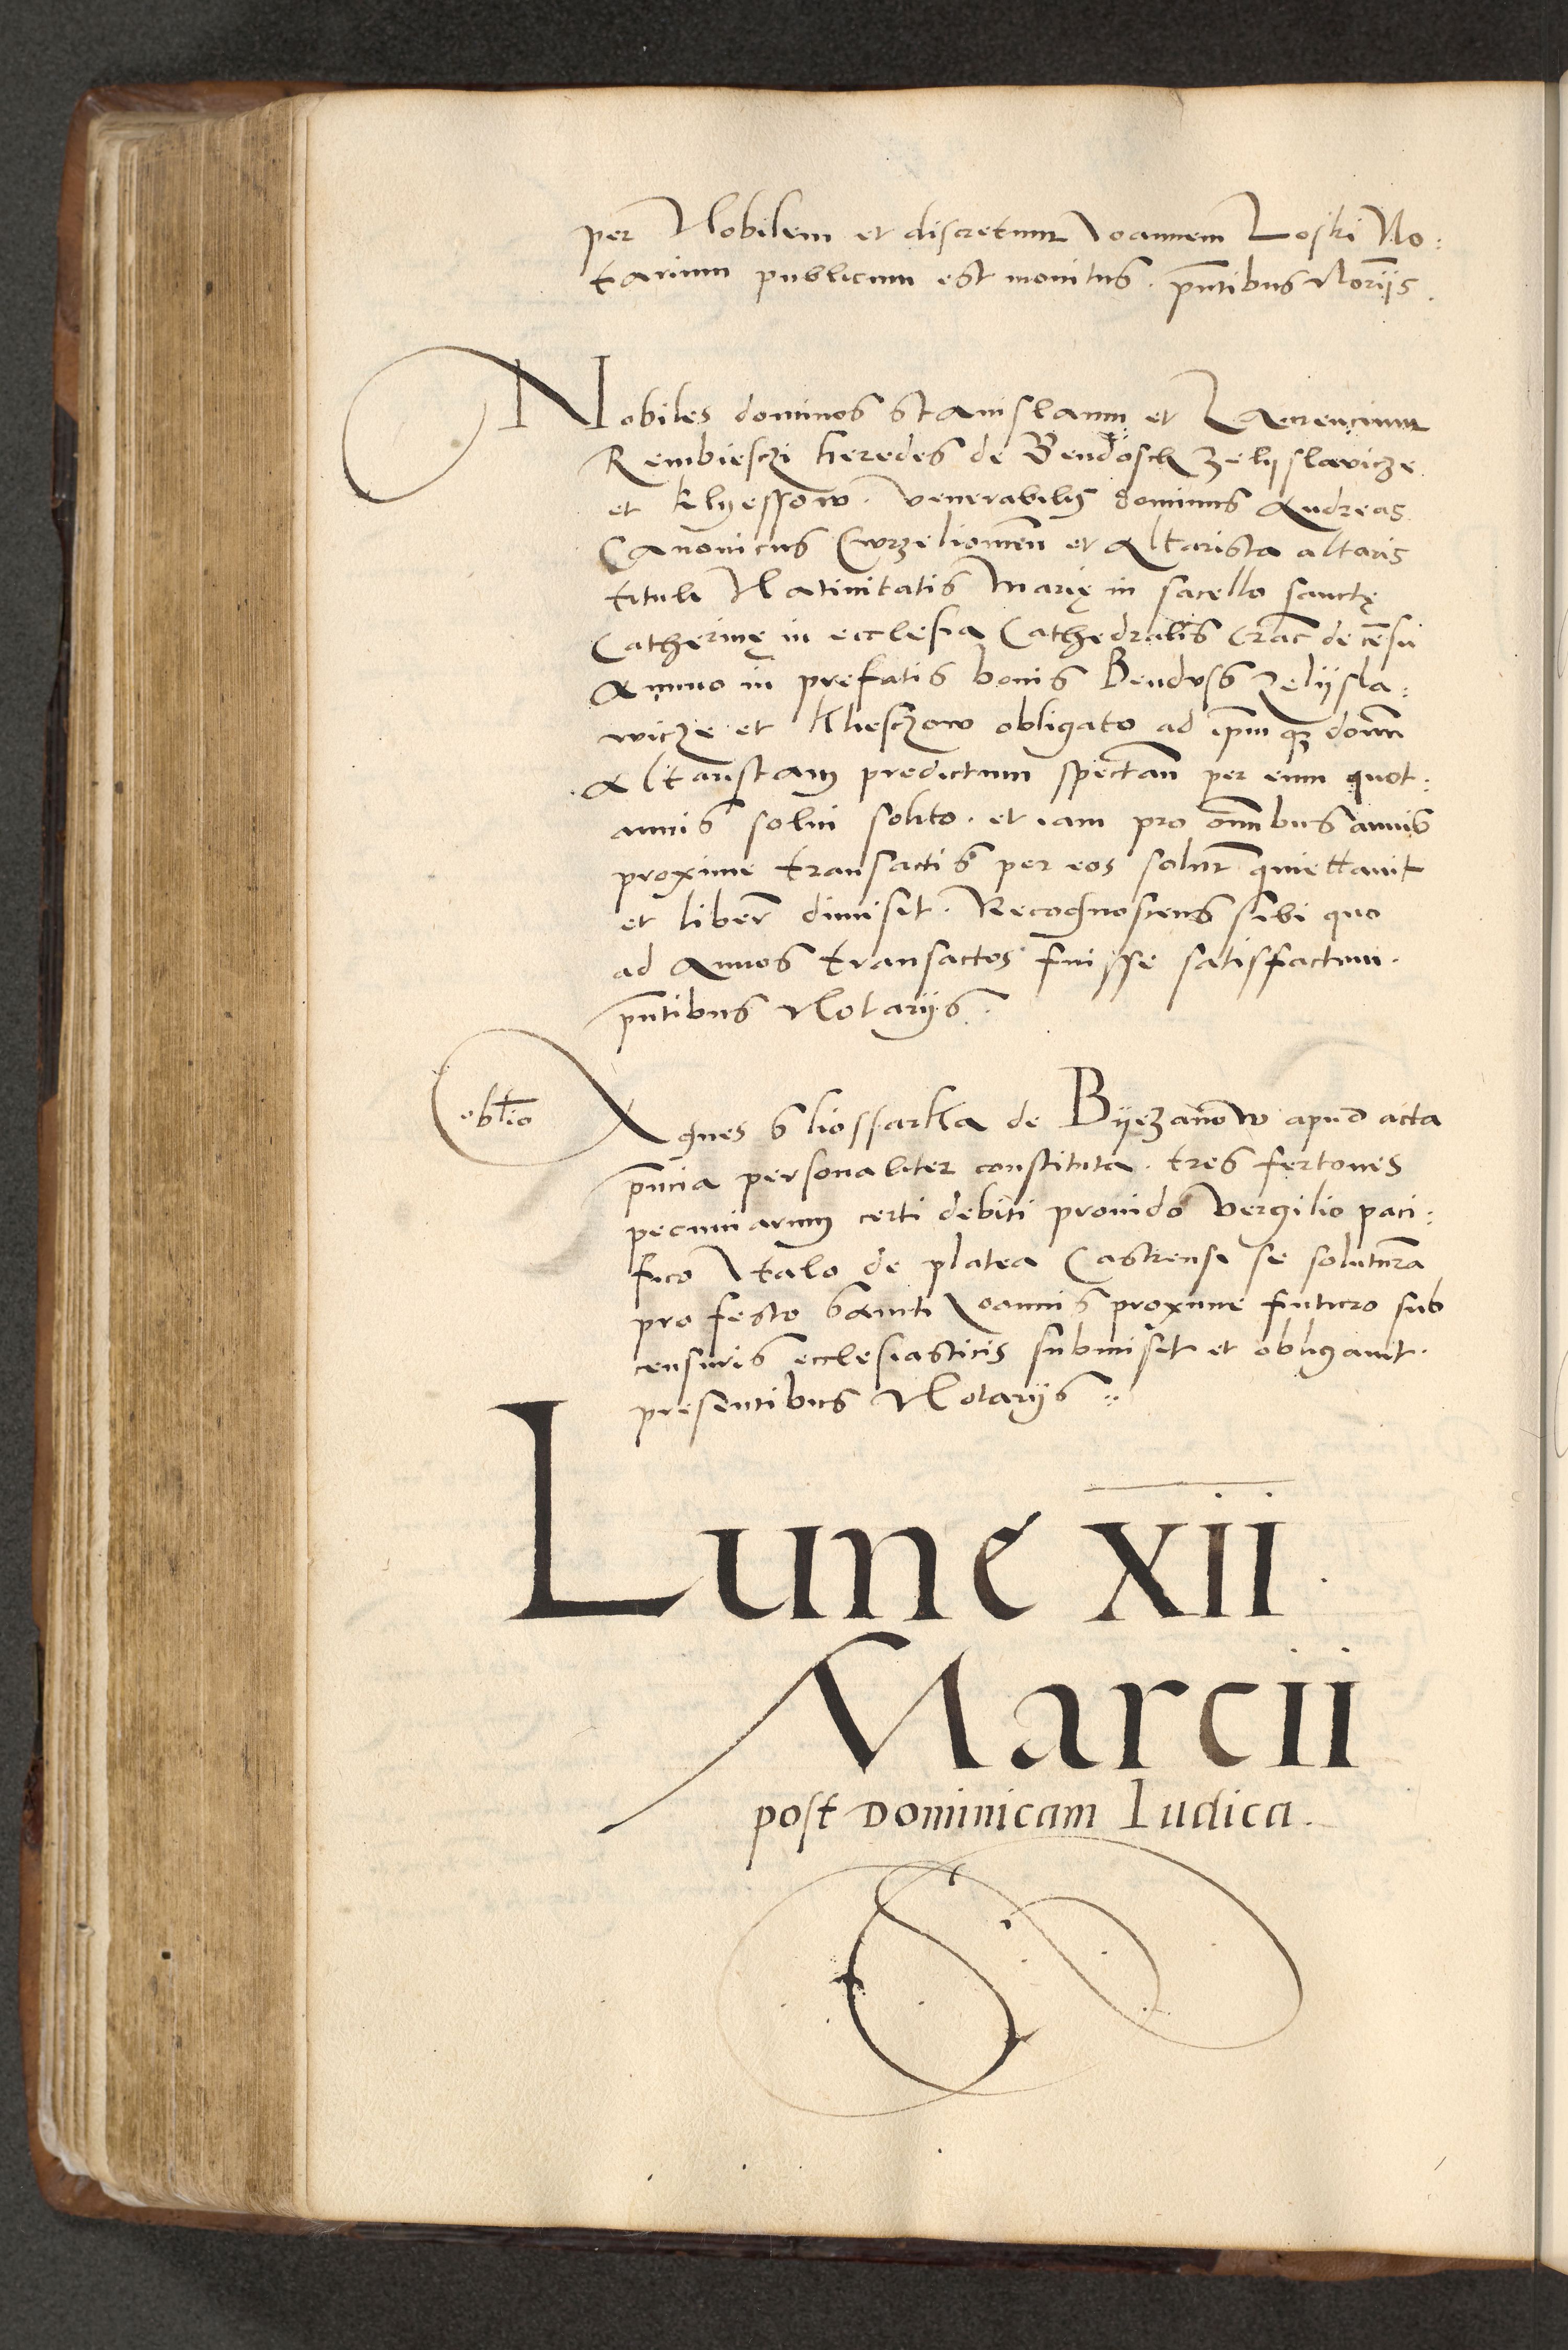 per Nobilem et discretum Ioannem Loski No:
tarium publicum est monitus. pn̄tibus Norijs.
Nobiles dominos Stanislaum et Laurencium
Rembieschi heredes de Bendosch Zelyslavicze
et Klyessow. Venerabilis dominus Andreas
Canonicus Curzelioneñ et Altarista altaris
tituli Nativitatis Marię in sacello sanctę
Catherinę in ecclesia Cathedralis Crac̄ de cēsu
Annuo in prefatis bonis Bendusz Zelijsla:
wicze et Klieszow obligato ad ip̄mq̄ꝫ domn̄
Altaristam predictum spectan̄ per eum quot:
annis solui solito. et iam pro om̄ibus annis
proxime transactis per eos solut̄ quiettauit
et liber̄ dimisit. Recognoscens sibi quo
ad Annos transactos fuisse satisfactum.
pn̄tibus Notarijs.
obl̄io
Agnes Sliossarka de Bijezanow apud acta
pn̄cia personaliter constituta. tres fertones
pecuniarum certi debiti prouido Vergilio paci:
fico Italo de platea Castrensi se solutura
pro festo Sancti Ioannis proxime futuro sub
censuris ecclesiasticis submisit et obligauit.
presentibus Notarijs.
Lunę xii
Marcii
post Dominicam Iudica.